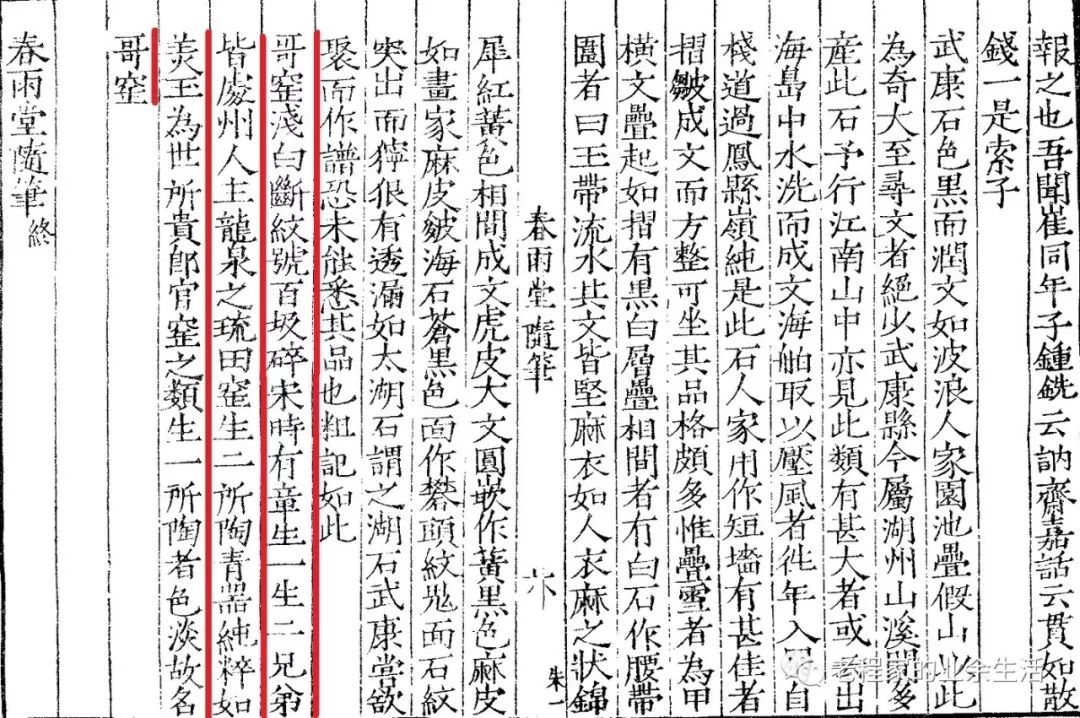 報之也吾聞崔同年子鍾銑云訥齋嘉話云貫如散
錢一是索子
武康石色黑而潤文如波浪人家園池疊假山以此
為奇大至尋文者絕少武康縣今屬湖州山溪間多
產此石予行江南山中亦見此類有甚大者或出
海島中水洗而成文海舶取以壓風者徃年入
自
棧道過鳳縣嶺純是此石人家用作短墻有甚佳者
摺皺成文而方整可坐其品格頗多惟疊雪者為甲
橫文疊起如摺有黑白層疊相間者有白石作腰帶
圍者曰玉帶流水其文皆堅麻衣如人衣麻之狀錦
春雨堂隨筆
六
朱一
犀紅黃色相間成文虎皮大文圓嵌作黃黑色麻皮
如畫家麻皮皴海石蒼黑色面作礬頭紋鬼面石紋
突出而獰狠有透漏如太湖石謂之湖石武康嘗欲
聚而作譜恐未能悉其品也粗記如此
哥窑淺白斷紋號百圾碎宋時有章生一生二兄弟
皆處州人主龍泉之琉田窑生二所陶青器純粹如
美玉為世所貴郎官窑之類生一所陶者色淡故名
哥窑
春雨堂隨筆終
老程家的业余生活